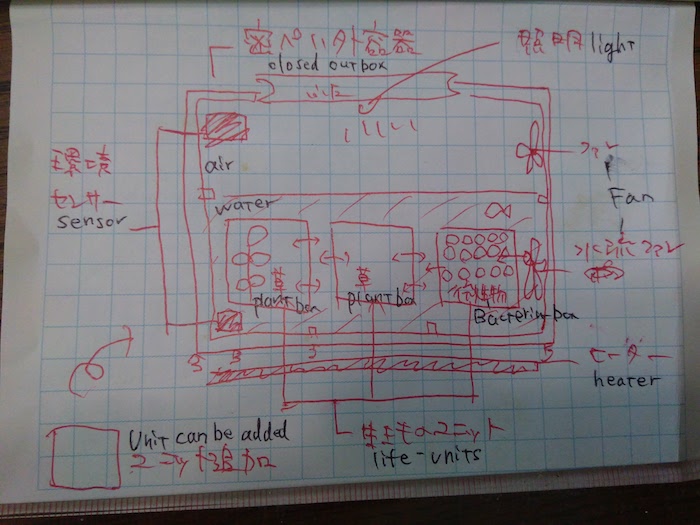 closed outbox
照明 light
ファン
Fan
水流ファン
環境
センサー
sensor
air
water
草
plant box
草
plant box
微生物
Bacteria box
ヒーター
heater
生き物ユニット
life-units
Unit can be added
ユニット追加